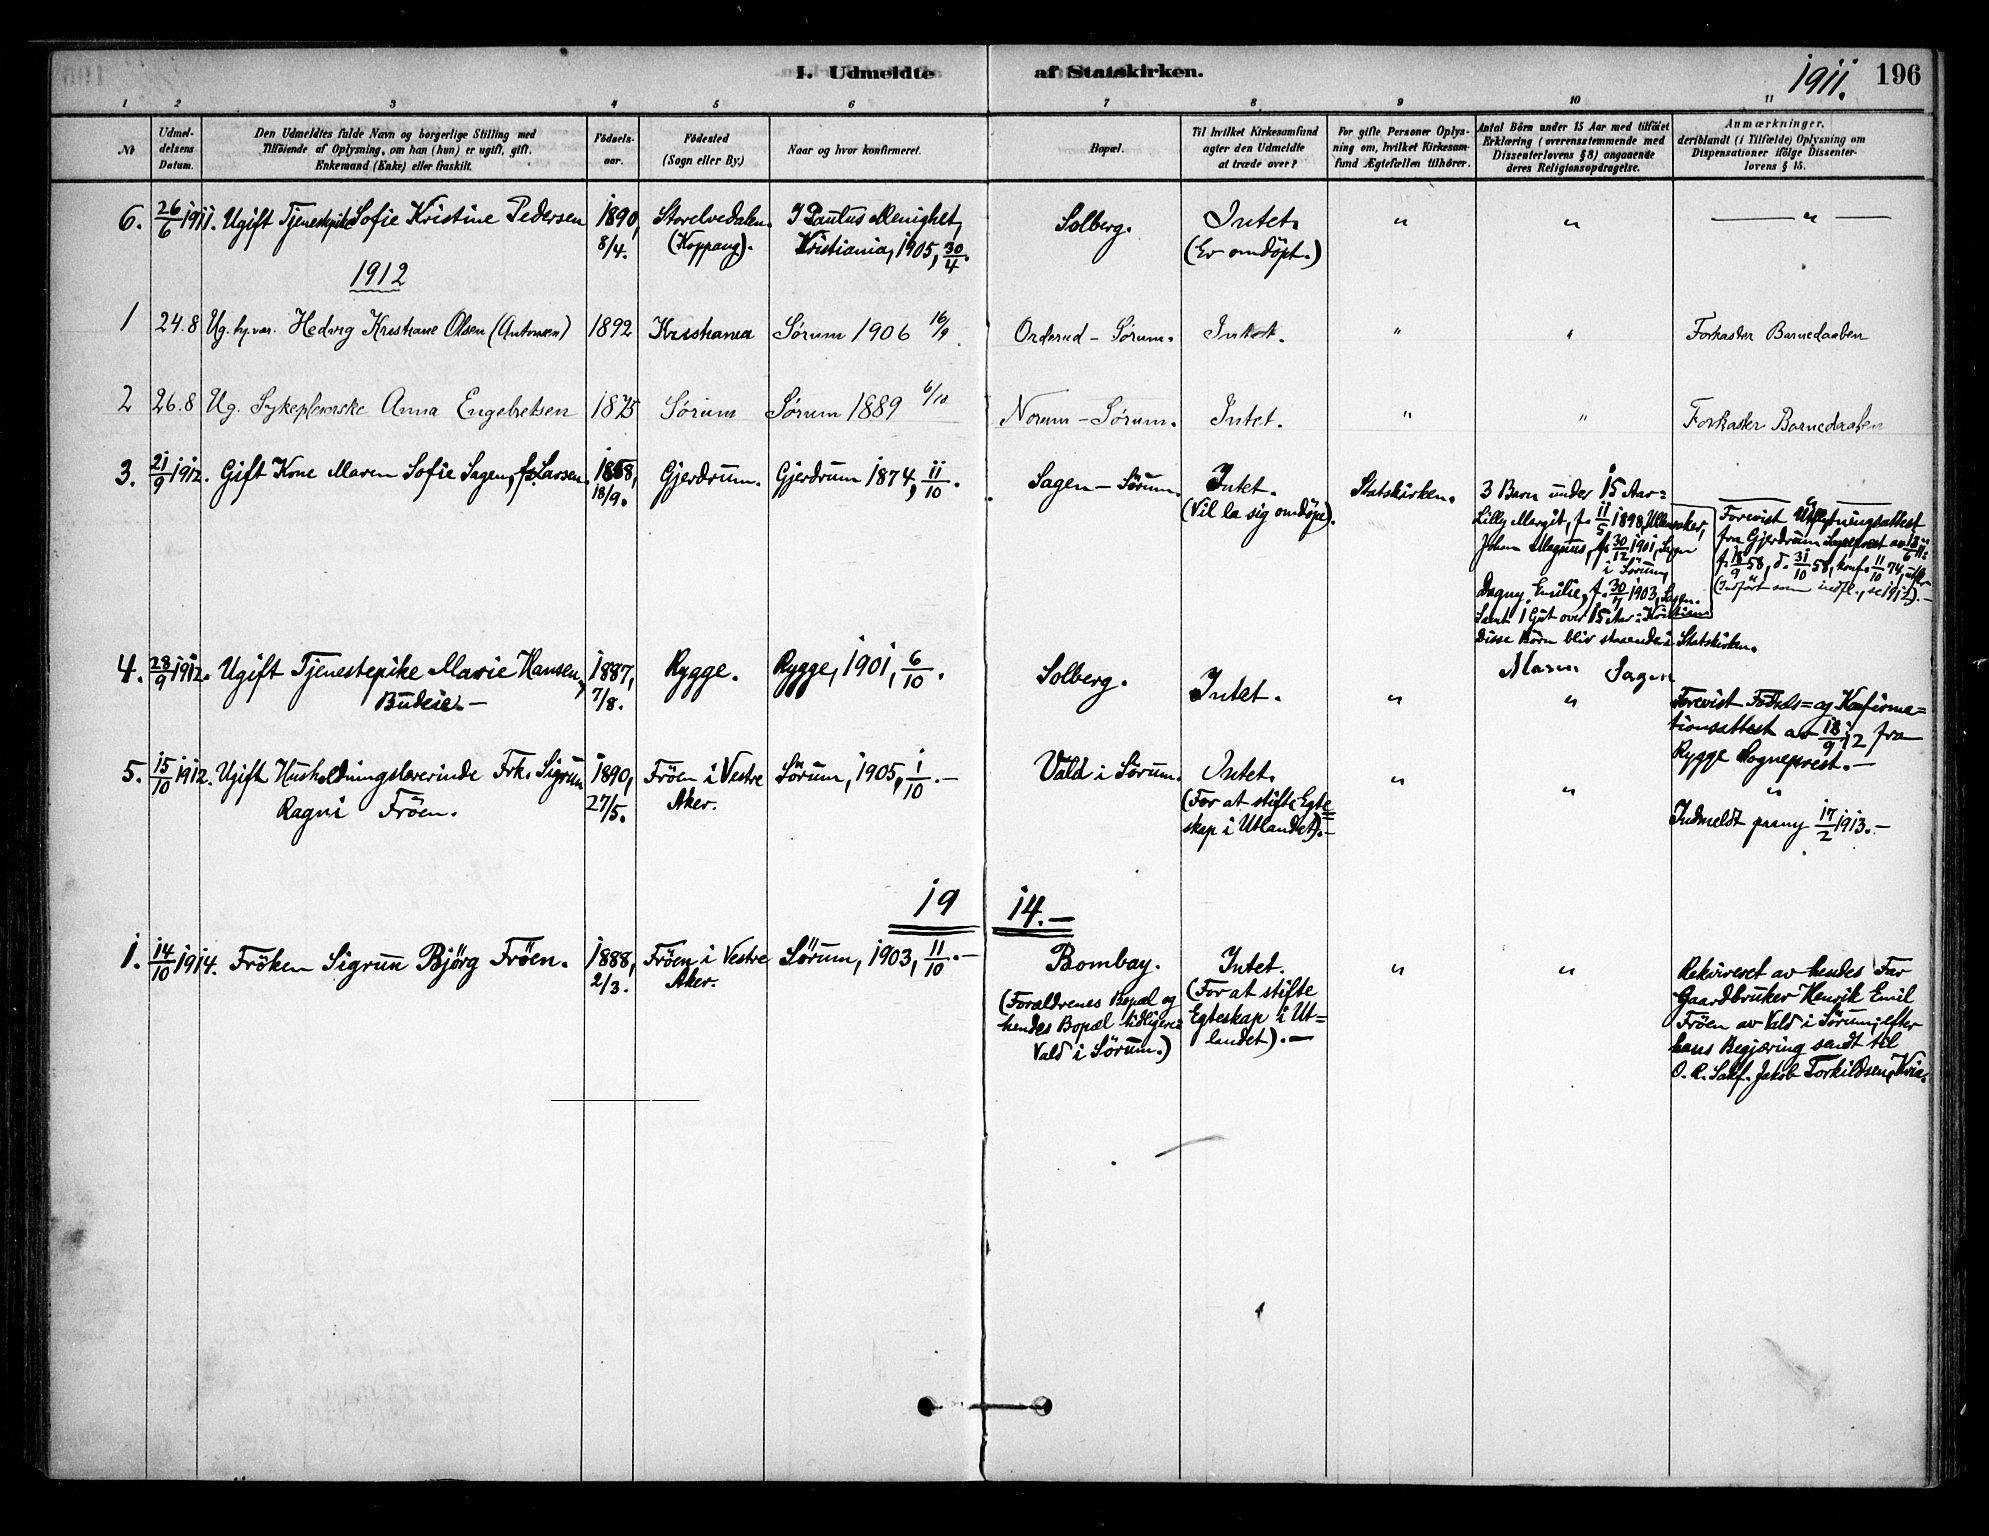 I. Udmeldte af Statskirken. 1911. 196
1 2 3 4 5 6 7 8 9 10 11
No
Udmel-
delsens
Datum.
Den Udmeldtes fulde Navn og borgerlige Stilling med
Tilföiende af Oplysning, om han (hun) er ugift, gift,
Enkemand (Enke) eller fraskilt.
Födsels-
aar.
Födested
(Sogn eller By.)
Naar og hvor konfirmeret.
Bopæl.
Til hvilket Kirkesamfund
agter den Udmeldte
at træde over?
For gifte Personer Oplys-
ning om, hvilket Kirkesam-
fund Ægtefællen tilhörer.
Antal Börn under 15 Aar med tilföiet
Erklæring (overensstemmende med
Dissenterlovens § 8) angaaende
deres Religionsopdragelse.
Anmærkninger,
deriblandt (i Tilfælde) Oplysning om
Dispensationer ifölge Dissenter-
lovens § 15.
6. 26/6 1911. Ugift Tjenestepike Sofie Kristine Pedersen
1890,
8/4.
Storelvedalen
(Koppang).
I Paulus Menighet,
Kristiania, 1905, 30/4.
Solberg.
Intet.
(Er omdöpt.)
" " — " —
1912
1 24.8 Ug. hv. var. Hedvig Kristiane Olsen (Antonsen) 1892 Kristiania Sörum 1906 16/9 Orderud - Sörum. Intet. " " Forkaster Barnedaaben
2 26.8 Ug. Sykepleierske Anna Engebretsen 1875 Sörum Sörum 1889 6/10 Norum - Sörum. Intet. " " Forkaster Barnedaaben
3. 21/9 1912. Gift Kone Maren Sofie Sagen, f. Larsen.
1858,
18/9.
Gjerdrum. Gjerdrum 1874, 11/10.
Sagen - Sörum.
Intet.
(Vil la sig omdöpe).
Statskirken.
3 Barn under 15 Aar:
Lilly Margit, f. 11/5 1898, Ullensaker,
Johan Magnus, f. 30/12 1901, Sagen
i Sörum,
Dagny Emilie, f. 30/7 1903, Sagen.
Samt 1 Gut over 15 Aar: Kristian
Disse Börn blir staaende i Statskirken.
Maren Sagen
"
Forevist Utflytningsattest
fra Gjerdrum Sogneprest av 18/6 11:
f. 18/9 58, d. 31/10 58, konf. 11/10 74, utfl.
(Indfört som indfl., se 1912).-
4. 28/9 1912. Ugift Tjenestepike Marie Hansen,
Budeie.-
1887,
7/8.
Rygge. Rygge, 1901, 6/10.
Solberg.
Intet. " "
Forevist Födsels= og Konfirma=
tionsattest av 18/9 12 fra
Rygge Sogneprest.-
5. 15/10 1912. Ugift Husholdningslærerinde Frk. Sigrun
Ragni Fröen.
1890,
27/5.
Fröen i Vestre
Aker.
Sörum, 1905, 1/10.-
Vald i Sörum.
Intet.
(For at stifte Egte=
skap i Utlandet).-
" " "
Indmeldt paany 17/2 1913.-
1914.-
1. 14/10 1914. Fröken Sigrun Bjørg Fröen.
1888,
2/3.
Fröen i Vestre
Aker.
Sörum, 1903, 11/10.-
Bombay.
(Forældrenes Bopæl og
hendes Bopæl tidligere:
Vald i Sörum.)
Intet.
(For at stifte
Egteskap i Ut=
landet).-
" "
Rekvireret av hendes Far
Gaardbruker Henrik Emil
Fröen av Vald i Sörum; efter
hans Begjæring sendt til
O. R. Sakf. Jakob Torkildsen, Kria.